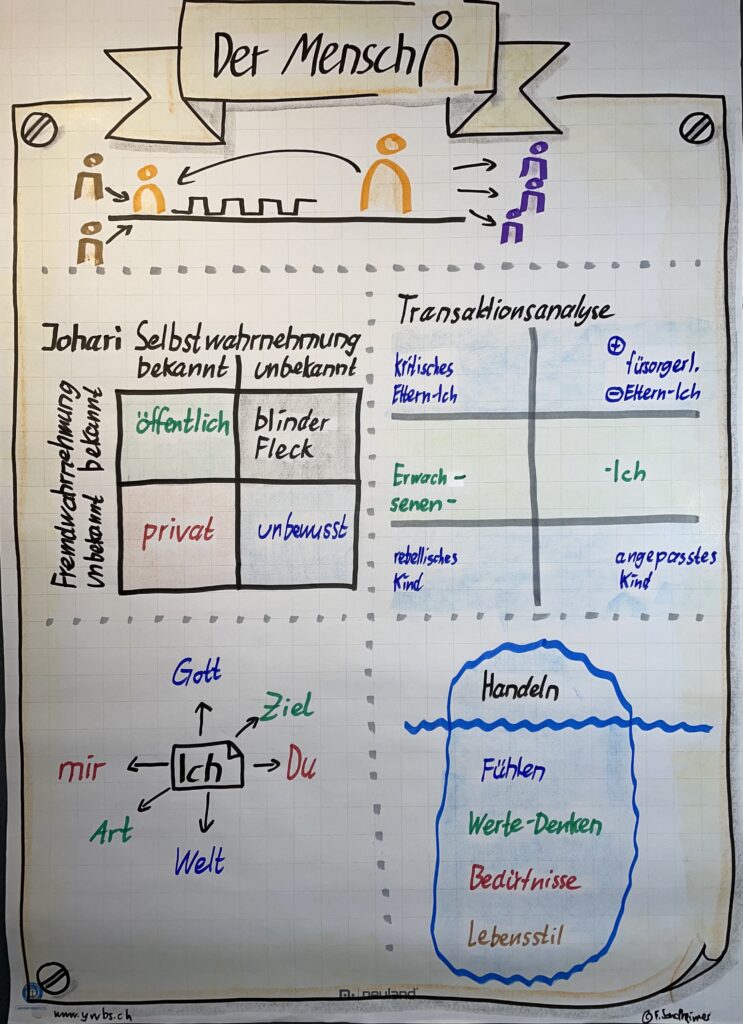 Der Mensch
Johari Selbstwahrnehmung
bekannt unbekannt
Fremdwahrnehmung
unbekannt bekannt
öffentlich
blinder
Fleck
privat
unbewusst
Transaktionsanalyse
kritisches
Eltern-Ich
+
fürsorgerl.
- Eltern-Ich
Erwach-
senen-
-Ich
rebellisches
Kind
angepasstes
Kind
Gott
Ziel
mir
Ich
Du
Art
Welt
Handeln
Fühlen
Werte-Denken
Bedürfnisse
Lebensstil
neuland
www.ywbs.ch